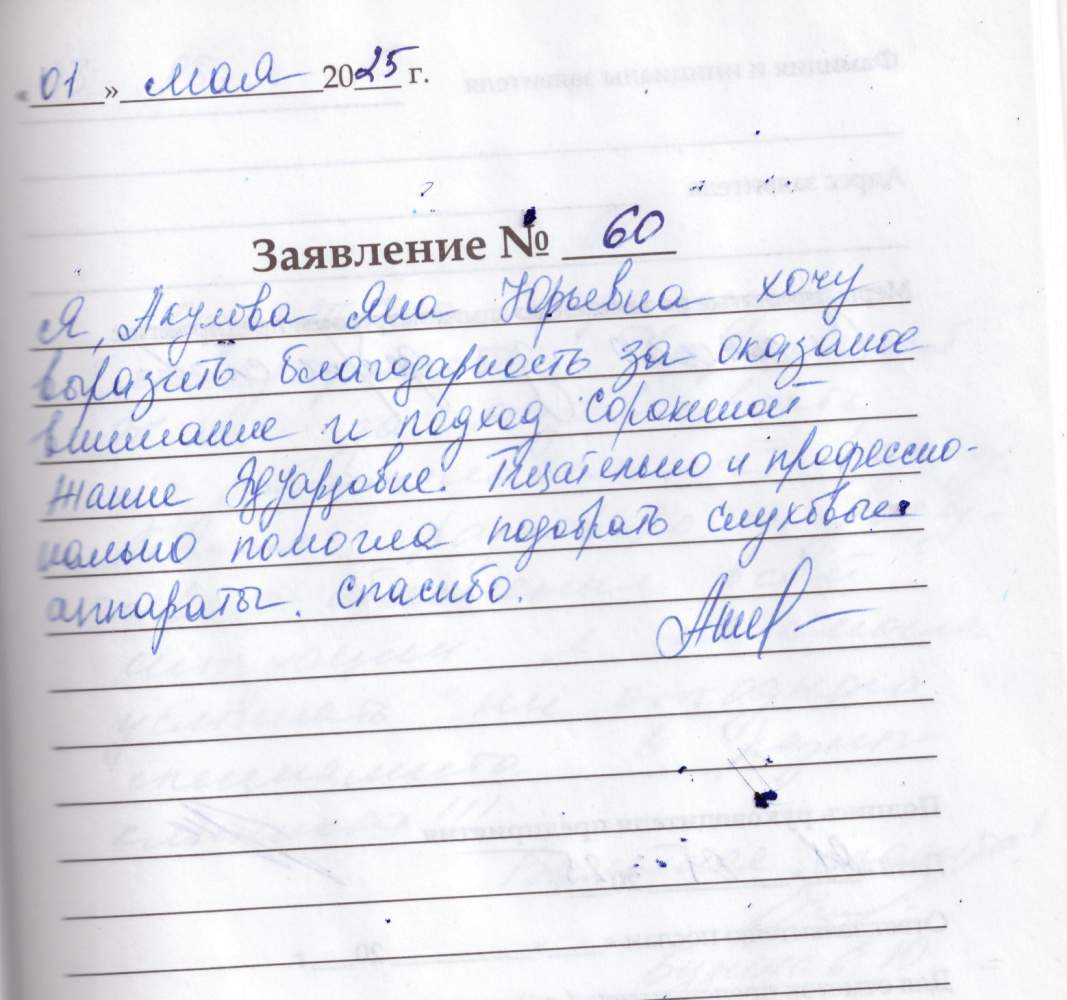 «01» мая 2025 г.
Заявление № 60
Я, Акулова Яна Юрьевна хочу
выразить благодарность за оказаное
внимание и подход Сорокиной
Жанне Эдуардовне. Тщательно и профессио-
нально помогла подобрать слуховые
аппараты. Спасибо.